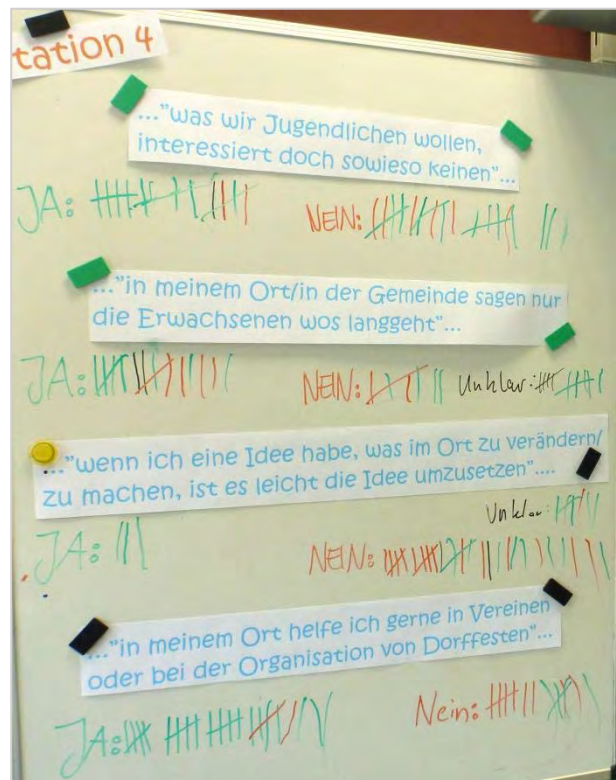 tation 4
..."was wir Jugendlichen wollen,
interessiert doch sowieso keinen"...
JA:
NEIN:
..."in meinem Ort/in der Gemeinde sagen nur
die Erwachsenen wos langgeht"...
JA:
NEIN:
Unklar:
..."wenn ich eine Idee habe, was im Ort zu verändern/
zu machen, ist es leicht die Idee umzusetzen"....
Unklar:
JA:
NEIN:
..."in meinem Ort helfe ich gerne in Vereinen
oder bei der Organisation von Dorffesten"...
JA:
Nein: